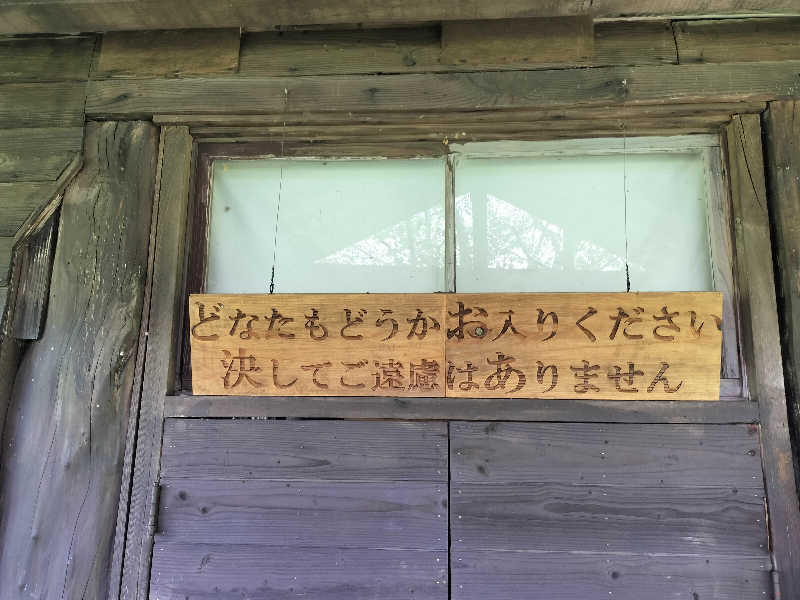 どなたもどうかお入りください
決してご遠慮はありません